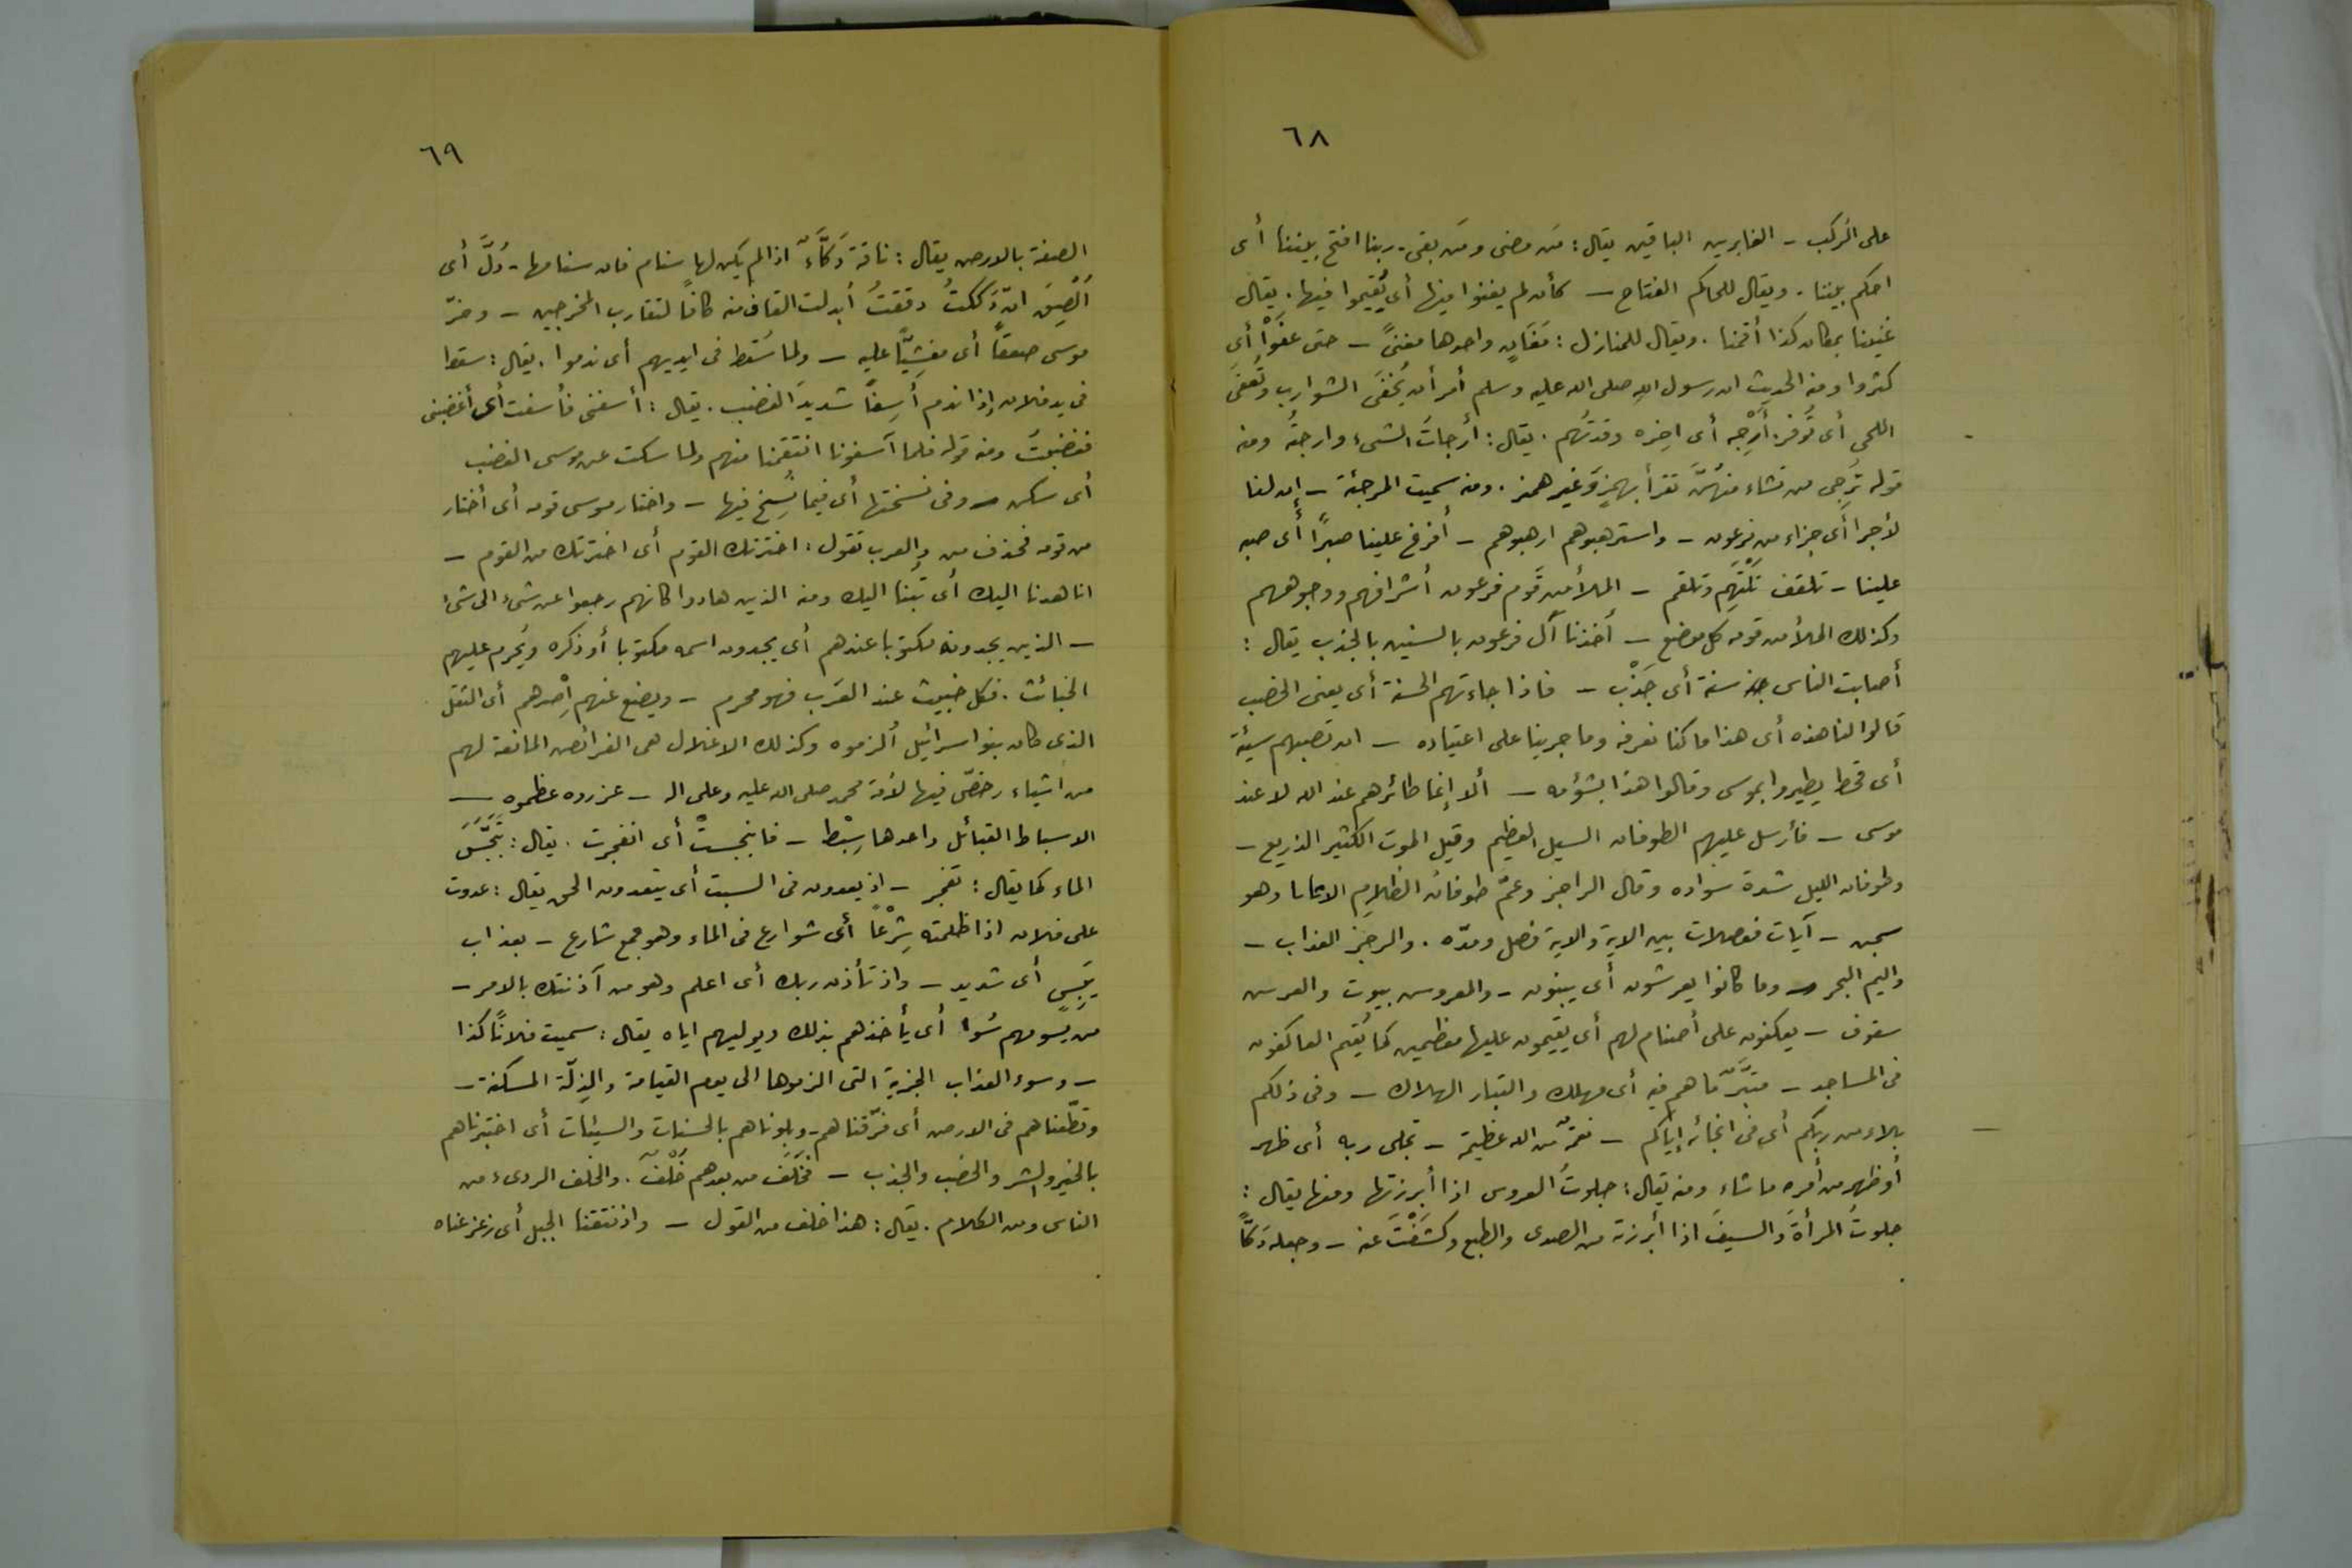 ٦٨
على الركب - الغابرين الباقين يقال: من مضى ومن بقى - ربنا افتح بيننا أى
احكم بيننا . ويقال للحاكم الفتاح - كأن لم يغنوا فيها أى يُقيموا فيها . يقال
غنينا بمكان كذا أقمنا . ويقال للمنازل : مَغَانٍ واحدها مغنىً - حتى عفَوْا أى
كثروا ومنه الحديث ان رسول الله صلى الله عليه وسلم أمر أن تُحْفَى الشوارب وتُعفَى
اللحى أى تُوَفر . أرْجِه أى اخِره وقدتُهم . يقال : أرجأتَ الشىء وارجيتُه ومنه
قوله تُرجِى من تشاء منهُنَّ تقرأ بهمزٍ وَغير همز . ومنه سميت المرجئة - إن لنا
لأجرا أى جزاء من فرعون - واسترهبوهم ارهبوهم - أفرغ علينا صبرًا أى صبه
علينا - تلقف تَلْتَهِم وتلقم - الملأ من قوم فرعون أشرافهم ووجوههم
وكذلك الملأ من قومه كل موضع - أخذنا آل فرعون بالسنين بالجذب يقال :
أصابت الناس سنة أى جَدْب - فاذا جاءتهم الحسنة أى يعنى الخصب
قالوا لنا هذه أى هذا ما كنا نعرفه وما جرينا على اعتياده - ان تصبهم سيئة
أى قحط يطيروا بموسى وقالوا هذا بشؤمه - ألا إنما طائرهم عند الله لا عند
موسى - فأرسل عليهم الطوفان السيل العظيم وقيل الموت الكثير الذريع -
وطوفان الليل شدة سواده وقال الراجز وعمّ طوفانُ الظلامِ الاثابا وهو
سجن - آيات مفصلات بين الاية والاية فصل ومدّه . والرجز العذاب -
واليم البحر - وما كانوا يعرشون أى يبنون - والعروس بيوت والعرس
سقوف - يعكفون على أصنام لهم أى يقيمون عليها معظمين كما يُقيم العاكفون
فى المساجد - متبَّرٌ ما هم فيه أى مهلك والتبار الهلاك - وفى ذلكم
بلاء من ربكم أى فى انجائه إياكم - نعمةٌ من الله عظيمة - تجلى ربه أى ظهر
أو ظهر من أمره ما شاء ومنه يقال : جلوتُ العروس اذا أبرزتها ومنها يقال :
جلوتُ المرأةَ والسيفَ اذا أبرزته من الصدى والطبع وكَشَفْتَ عنه - وجعله دَكًّا
٦٩
الصقه بالارض يقال : ناقة دَكَّاءٌ اذا لم يكن لها سنام فان سنامها - دُلَّ أى
أُلْصِقَ انّ دَككتُ دققتُ أبدلت القاف منه كافًا لتقارب المخرجين - وخرّ
موسى صعقًا أى مغشِيًّا عليه - ولما سُقط فى ايديهم أى ندموا . يقال : سقوا
فى يد فلان إذا ندم أَسِفًا شديدَ الغضب . يقال : أسفنى فأسفت أى أغضبنى
فغضبتُ ومنه قوله فلما آسفونا انتقمنا منهم ولما سكت عن موسى الغضب
أى سكن - وفى نسختها أى فيما نُسِخ فيها - واختار موسى قومه أى أختار
من قومه فحذف من والعرب تقول : اخترتك القوم أى اخترتك من القوم -
انا هدنا اليك أى تُبنا اليك ومنه الذين هادوا كانهم رجعوا عن شىء الى شىء
- الذين يجدونه مكتوبا عندهم أى يجدون اسمه مكتوبا أو ذكره ويُحرم عليهم
الخبائث . فكل خبيث عند العَرَب فهو محرم - ويضع عنهم اِصْرهم أى الثقل
الذى كان بنو اسرائيل أُلزموه وكذلك الاغلال هى الفرائض المانعة لهم
من اشياء رخصّ فيها لأمة محمد صلى الله عليه وعلى اله - عزروه عظموه -
الاسباط القبائل واحدها سِبْط - فانبجستْ أى انفجرت . يقال : تَبَجَّسَ
الماء كما يقال : تفجر - اذ يعدون فى السبت أى يتعدون الحق يقال : عدوت
على فلان اذا ظلمته شِرْعًا أى شوارع فى الماء وهو جمع شارع - بعذاب
يَئِسٍ أى شديد - واذ تأذن ربك أى اعلم وهو من آذنتك بالامر -
من يسومهم سُوا أى يأخذهم بذلك ويوليهم اياه يقال : سميت فلانًا كذا
- وسوء العذاب الجزية التى الزموها الى يوم القيامة والذِلّة المسكنة -
وقطّعناهم فى الارض أى فرّقناهم - وبلوناهم بالحسنات والسيئات أى اختبرناهم
بالخير والشر والخصب والجذب - فخَلَفَ من بعدهم خَلْفٌ . والخلف الردىء من
الناس ومن الكلام . يقال : هذا خلف من القول - واذ نتقنا الجبل أى زعزعناه